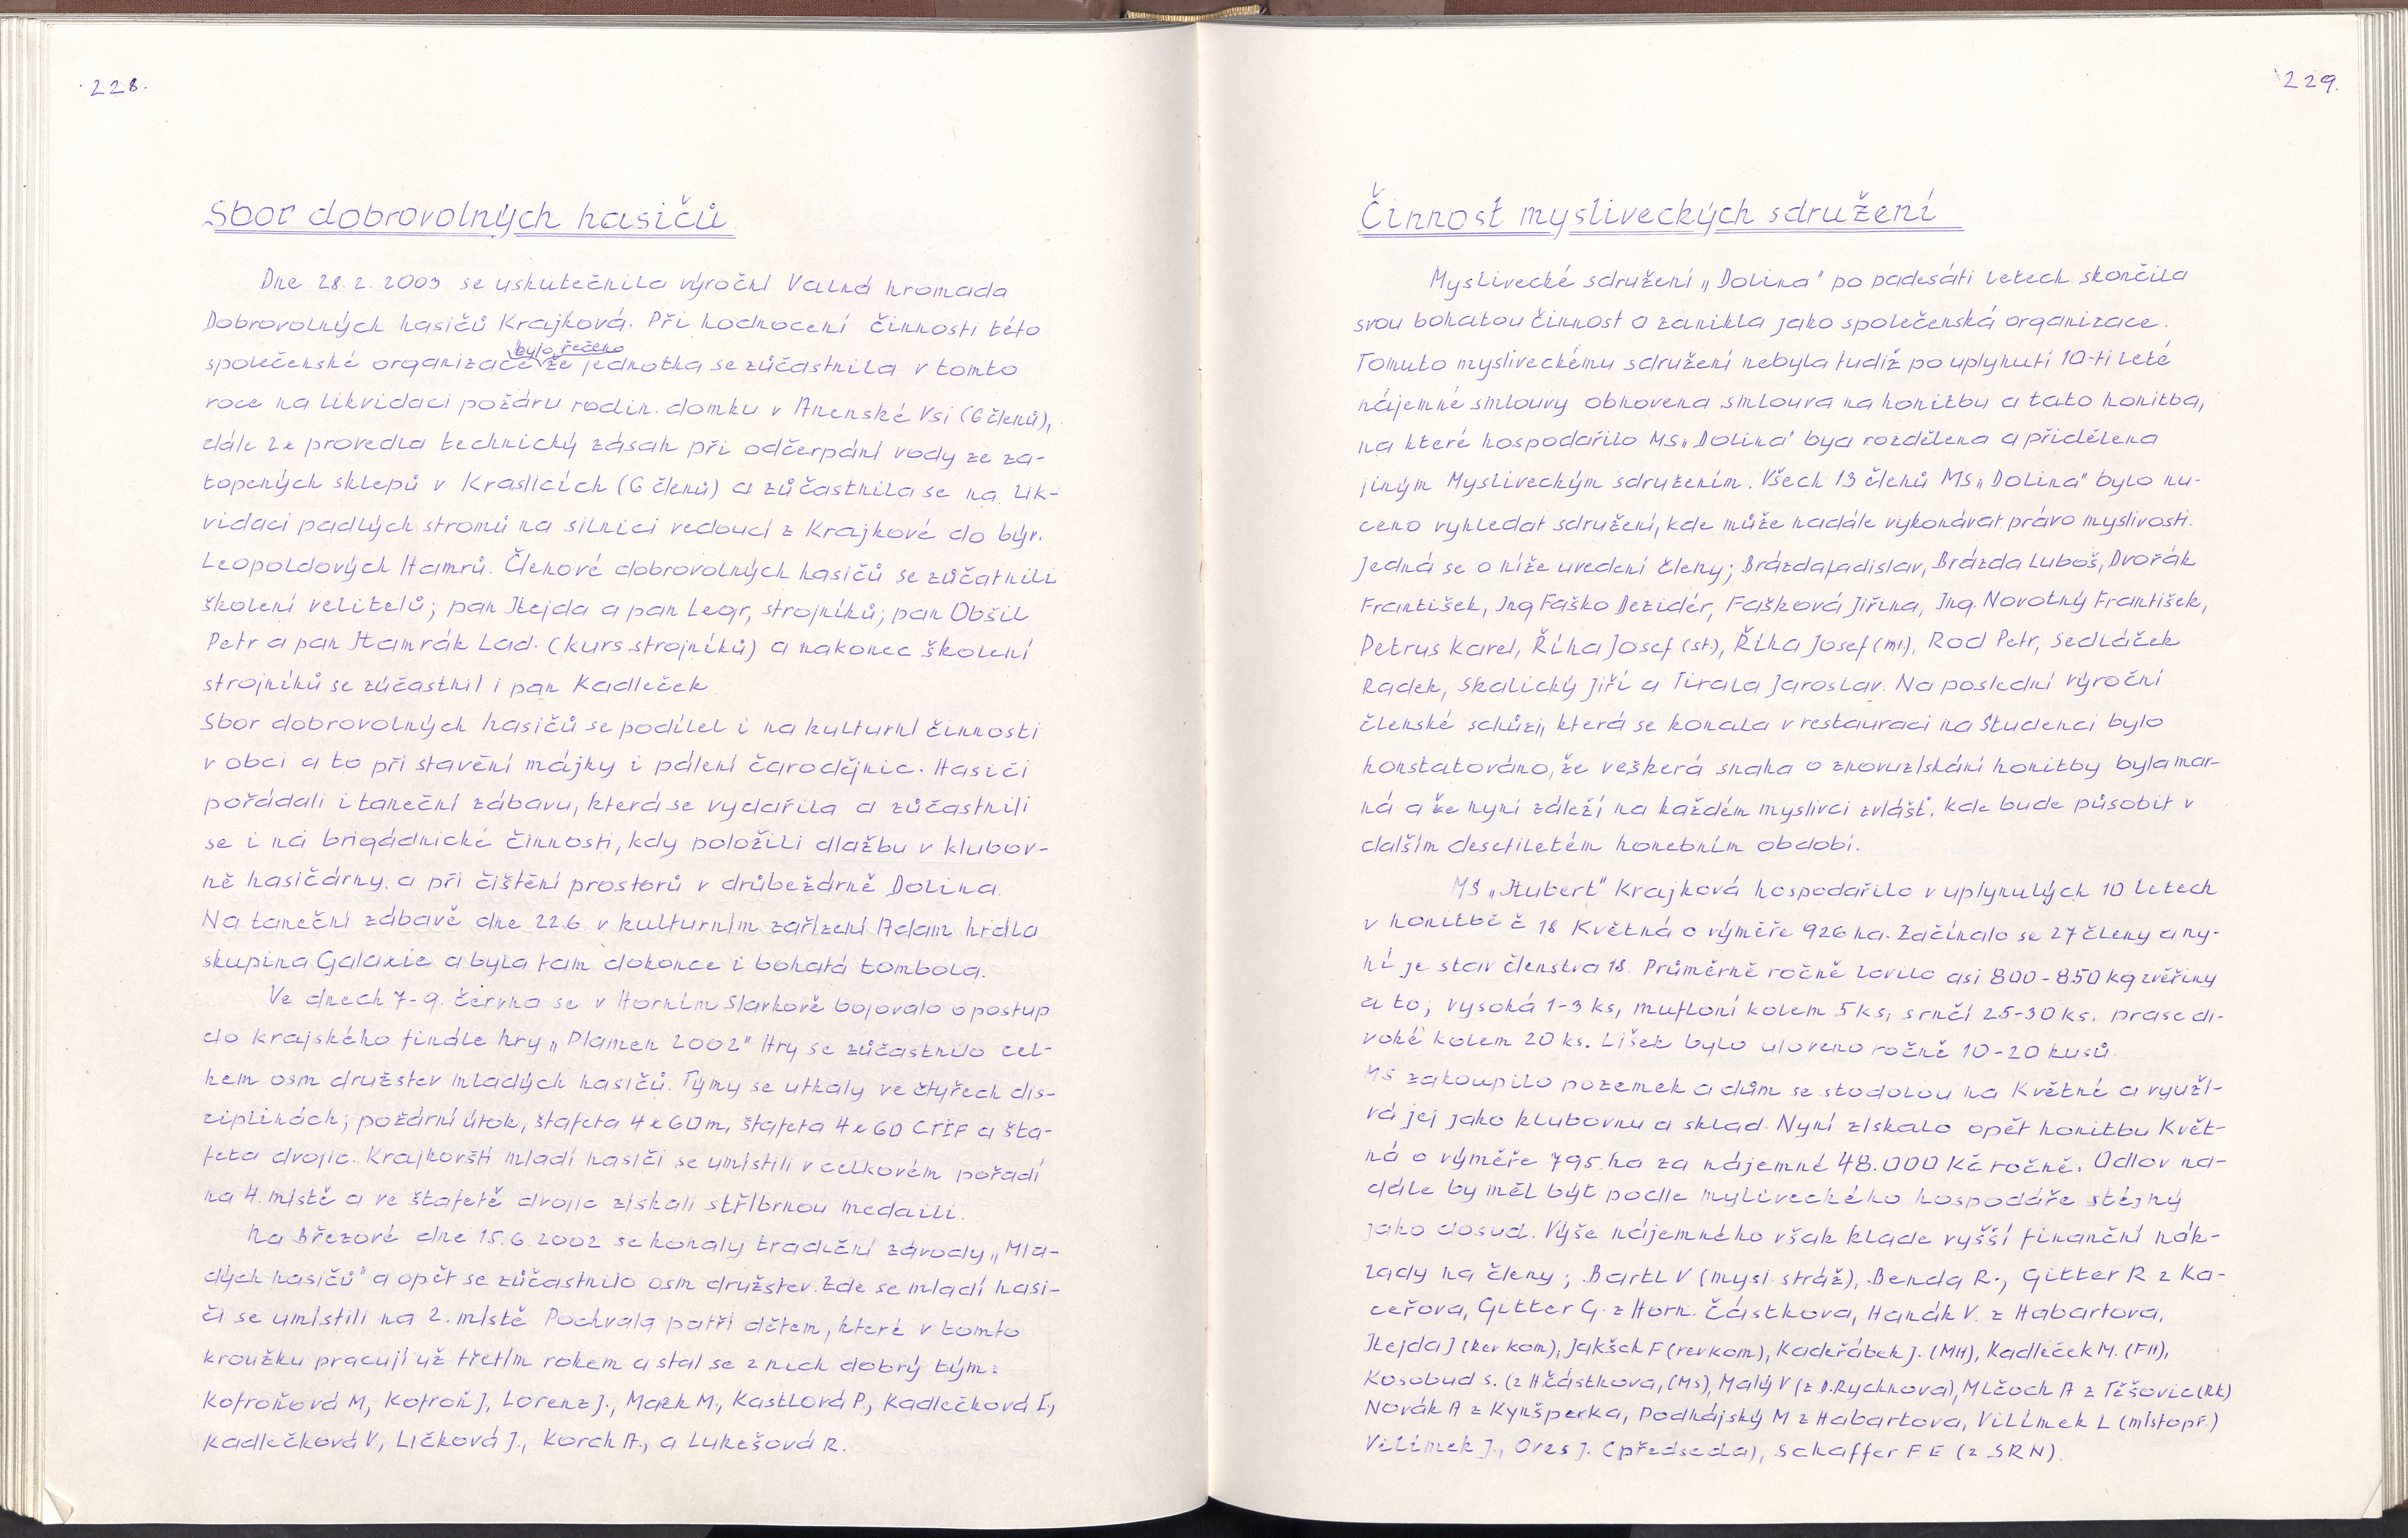 228.
Sbor dobrovolných hasičů
Dne 28. 2. 2003 se uskutečnila výroční Valná hromada
Dobrovolných hasičů Krajková. Při hodnocení činnosti této
bylo řečeno
společenské organizace že jednotka se zůčastnila v tomto
roce na likvidaci požáru rodin. domku v Anenské Vsi (6 členů),
dále že provedla technický zásah při odčerpání vody ze za-
topených sklepů v Kraslicích (6 členů) a zůčastnila se na lik-
vidaci padlých stromů na silnici vedoucí z Krajkové do býv.
Leopoldových Hamrů. Členové dobrovolných hasičů se zůčatnili
školení velitelů; pan Hejda a pan Legr, strojníků; pan Obšil
Petr a pan Hamrák Lad. (kurs strojníků) a nakonec školení
strojníků se zúčastnil i pan Kadleček
Sbor dobrovolných hasičů se podílel i na kulturní činnosti
v obci a to při stavění májky i pálení čarodějnic. Hasiči
pořádali i taneční zábavu, která se vydařila a zůčastnili
se i na brigádnické činnosti, kdy položili dlažbu v klubov-
ně hasičárny. a při čištění prostorů v drůbežárně Dolina.
Na taneční zábavě dne 22.6 v kulturním zařízení Adam hrála
skupina Galaxie a byla tam dokonce i bohatá tombola.
Ve dnech 7-9. června se v Horním Slavkově bojovalo o postup
do krajského finále hry „Plamen 2002" Hry se zůčastnilo cel-
kem osm družstev mladých hasičů. Týmy se utkaly ve čtyřech dis-
ciplinách; požární útok, štafeta 4 x 60m, štafeta 4 x 60 CTIF a šta-
feta dvojic. Krajkovští mladí hasiči se umístili v celkovém pořadí
na 4. místě a ve štafetě dvojic získali stříbrnou medaili.
Na Březové dne 15.6 2002 se konaly tradiční závody „Mla-
dých hasičů" a opět se zůčastnilo osm družstev. Zde se mladí hasi-
či se umístili na 2. místě Pochvala patří dětem, které v tomto
kroužku pracují už třetím rokem a stal se z nich dobrý tým:
Kotroňová M, Kotroň J, Lorenz J., Mazk M., Kastlová P., Kadlečková I.,
Kadlečková V, Líčková J., Korch A., a Lukešová R.
229.
Činnost mysliveckých sdružení
Myslivecké sdružení „Dolina" po padesáti letech skončila
svou bohatou činnost a zanikla jako společenská organizace.
Tomuto mysliveckému sdružení nebyla tudíž po uplynutí 10-ti leté
nájemné smlouvy obnovena smlouva na honitbu a tato honitba,
na které hospodařilo MS „Dolina" bya rozdělena a přidělena
jiným Mysliveckým sdružením. Všech 13 členů MS „Dolina" bylo nu-
ceno vyhledat sdružení, kde může nadále vykonávat právo myslivosti.
Jedná se o níže uvedení členy; Brázda Ladislav, Brázda Luboš, Dvořák
František, Ing Faško Dezidér, Fašková Jiřina, Ing. Novotný František,
Petrus Karel, Říha Josef (st.), Říha Josef (ml), Rod Petr, Sedláček
Radek, Skalický Jiří a Tirala Jaroslav. Na poslední výroční
členské schůzi, která se konala v restauraci na Studenci bylo
konstatováno, že veškerá snaha o znovuzískání honitby byla mar-
ná a že nyní záleží na každém myslivci zvlášť, kde bude působit v
dalším desetiletém honebním období.
MS „Hubert" Krajková hospodařilo v uplynulých 10 letech
v honitbě č 18 Květná o výměře 926 ha. Začínalo se 27 členy a ny-
ní je stav členstva 18. Průměrně ročně lovilo asi 800-850 kg zvěřiny
a to; vysoká 1-3 ks, mufloní kolem 5 ks, srnčí 25-30 ks. prase di-
voké kolem 20 ks. Lišek bylo uloveno ročně 10-20 kusů.
MS zakoupilo pozemek a dům se stodolou na Květné a využí-
vá jej jako klubovnu a sklad. Nyní získalo opět honitbu Květ-
ná o výměře 795 ha za nájemné 48.000 Kč ročně. Odlov na-
dále by měl být podle myliveckého hospodáře stejný
jako dosud. Výše nájemného však klade vyšší finanční nák-
lady na členy; Bartl V (mysl. stráž), Benda R., Gitter R z Ka-
ceřova, Gitter G. z Horn. Částkova, Hanák V. z Habartova,
Hejda J (rev kom), Jakšch F (rev kom), Kadeřábek J. (MH), Kadleček M. (FH),
Kosobud S. (z H. částkova, (MS), Malý V (z D. Rychnova), Mlčoch A z Těšovic (RK)
Novák A z Kynšperka, Podhájský M z Habartova, Vilímek L (místopř.)
Vilímek J., Ores J. (předseda), Schaffer F E (z SRN).